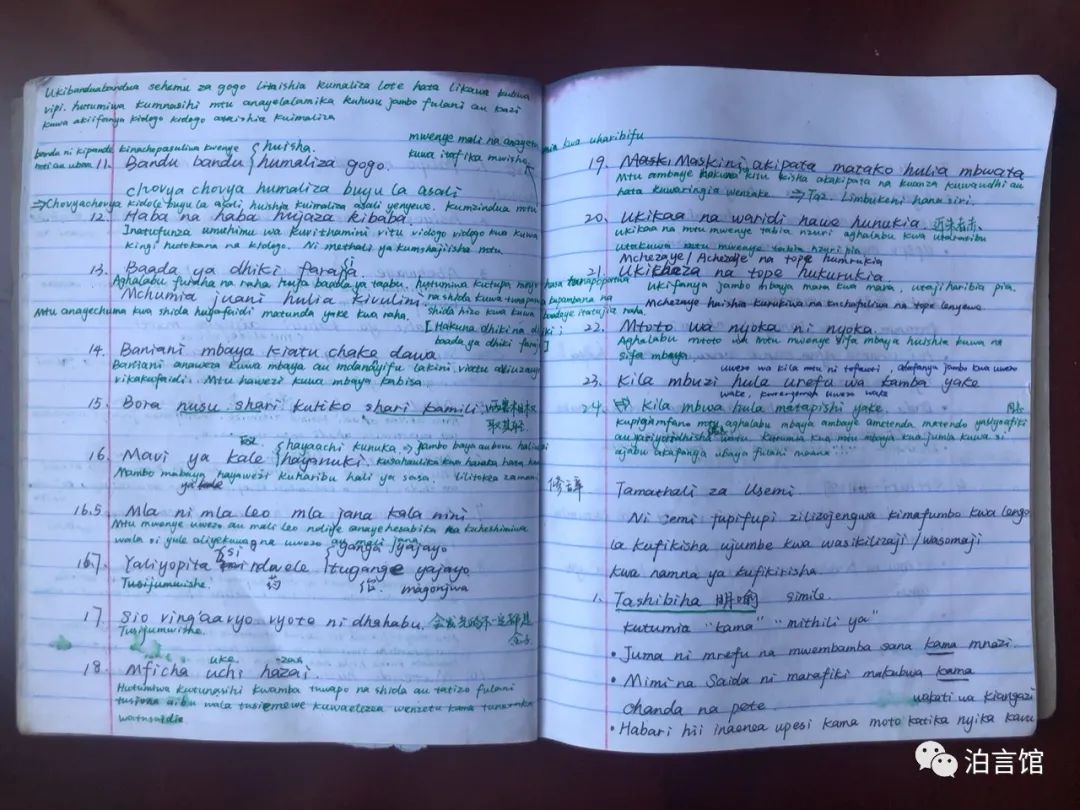 Ukibanduabandua sehemu za gogo litaishia kumaliza lote hata likawa kubwa
vipi. hutumiwa kumnasihi mtu anayelalamika kuhusu jambo fulani au kazi
kuwa akiifanya kidogo kidogo ataishia kuimaliza
bandu ni kipande kinachopasuliwa kwenye
mti au ubao
11. Bandu bandu { huisha.
humaliza gogo.
mwenye mali na anayetumia kwa uharibifu
kuwa itafika mwisho
chovya chovya humaliza buyu la asali
⇒ Chovyachovya kidole buyu la asali, huishia kuimaliza asali yenyewe. Kumzindua mtu
12. Haba na haba hujaza kibaba
Inatufunza umuhimu wa kuvithamini vitu vidogo vidogo kwa kuwa
kingi hutokana na kidogo. Ni methali ya kumshajiisha mtu
13. Baada ya dhiki faraja.
Aghalabu furaha na raha huja baada ya taabu, hutumiwa kutupa moyo hasa tunapopatwa
na shida kuwa tunapaswa kupambana na
shida hizo kwa kuwa baadaye itatujia raha.
Mchumia juani hulia kivulini
Mtu anagechuma kwa shida hufaifaidi matunda yake kwa raha.
[Hakuna dhiki na dhiki;
baada ya dhiki faraji]
14. Baniani mbaya kiatu chake dawa
Baniani anaweza kuwa mbaya au mdanganyifu lakini viatu akiuzavyo
vikakufaidi. Mtu hawezi kuwa mbaya kabisa.
15. Bora nusu shari kuliko shari kamili 两害相权
取其轻
16. Mavi ya kale { hayaachi kunuka
hayanuki.
Mambo mabaya hayawezi kuharibu hali ya sasa. lilitokea zamani
16.5 Mla ni mla leo mla jana kala nini
Mtu mwenye uwezo au mali leo ndiye anayehesabika na kuheshimiwa
wala si yule aliyekuwa na uwezo au mali jana
16.7 Yaliyopita si ndwele { ganga yajayo
tugange yajayo
Tusijumwishe. 药 治 magonjwa
17 Sio ving'aavyo vyote ni dhahabu. 会发光的不一定都是
金子
Tusijumwishe.
18 Mficha uchi hazai.
uke zaa
Hutumiwa kutunasihi kwamba tuwapo na shida au tatizo fulani
tusione aibu wala tusiemewe kuwaelezea wenzetu kama tunataka
watusaidie
19. Maskini akipata matako hulia mbwata
Mtu ambaye hakuwa na kitu kisha akakipata na kuanza kuwaudhi au
hata kuwaringia wenzake. ⇒ Taz. Limbukeni hana siri.
20. Ukikaa na waridi nawe hunukia. 近朱者赤、
ukikaa na mtu mwenye tabia nzuri aghalabu kwa utaratibu
utakuwa mtu mwenye tabia nzuri pia
Mchezaye / Achezaye na tope humrukia
21. Ukicheza na tope hukurukia
Ukifanya jambo mbaya mara kwa mara, utajiharibia pia.
Mchezaye haishia kurukiwa na kuchafuliwa na tope lenyewe
22. Mtoto wa nyoka ni nyoka.
Aghalabu mtoto wa mtu mwenye sifa mbaya huishia kuwa na
sifa mbaya.
uwezo wa kila mtu ni tofauti, atafanya jambo kwa uwezo
23. Kila mbuzi hula urefu wa kamba yake
wake, kuwezekana uwezo wake
24. Kila mbwa hula matapishi yake.
kupigia mfano mtu aghalabu mbaya ambaye ametenda matendo yasiyoafiki
au yasiyoridhisha watu kutumia kwa mtu mbaya kwa jumla kuwa si
ajabu akafanya ubaya fulani mwana
修辞 Tamathali za Usemi.
Ni semi fupifupi zilizojengwa kimafumbo kwa lengo
la kufikisha ujumbe kwa wasikilizaji / wasomaji
kwa namna ya kufikirisha.
1. Tashibiha 明喻 simile.
kutumia "kama" "mithili ya"
• Juma ni mrefu na mwembamba sana kama mnazi.
• Mimi na Saida ni marafiki makubwa kama
chanda na pete.
wakati wa kiangazi
• Habari hii inaenea upesi kama moto katika nyika kavu
泊言馆